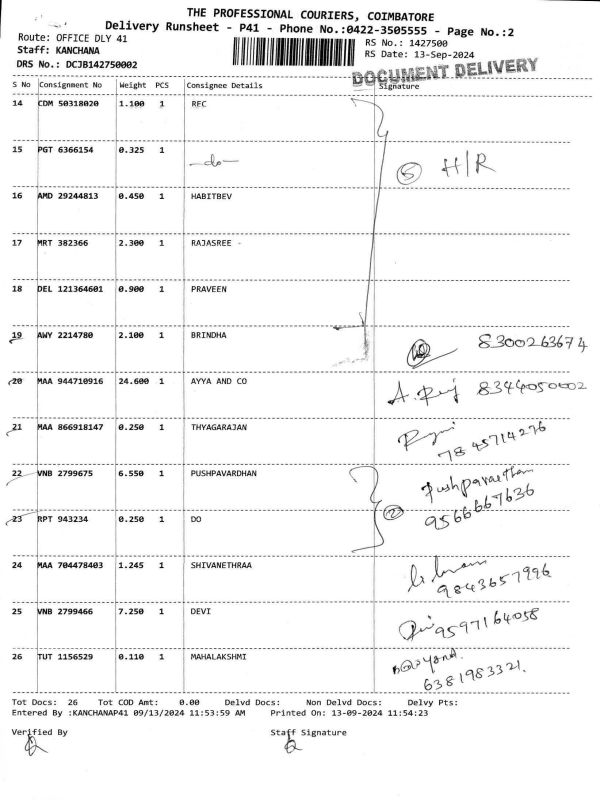 THE PROFESSIONAL COURIERS, COIMBATORE
Delivery Runsheet - P41 - Phone No.:0422-3505555 - Page No.:2
Route: OFFICE DLY 41
RS No.: 1427500
Staff: KANCHANA
RS Date: 13-Sep-2024
DRS No.: DCJB142750002
DOCUMENT DELIVERY
S No Consignment No Weight PCS Consignee Details Signature
14 CDM 50318020 1.100 1 REC
15 PGT 6366154 0.325 1 -do- 5 H/R
16 AMD 29244813 0.450 1 HABITBEV
17 MRT 382366 2.300 1 RAJASREE -
18 DEL 121364601 0.900 1 PRAVEEN
19 AWY 2214780 2.100 1 BRINDHA 8300263674
20 MAA 944710916 24.600 1 AYYA AND CO 8344050002
21 MAA 866918147 0.250 1 THYAGARAJAN
7845714276
22 VNB 2799675 6.550 1 PUSHPAVARDHAN
23 RPT 943234 0.250 1 DO 2 9566667636
24 MAA 704478403 1.245 1 SHIVANETHRAA
9843657996
25 VNB 2799466 7.250 1 DEVI 9597164058
26 TUT 1156529 0.110 1 MAHALAKSHMI
6381983321.
Tot Docs: 26 Tot COD Amt: 0.00 Delvd Docs: Non Delvd Docs: Delvy Pts:
Entered By :KANCHANAP41 09/13/2024 11:53:59 AM Printed On: 13-09-2024 11:54:23
Verified By Staff Signature